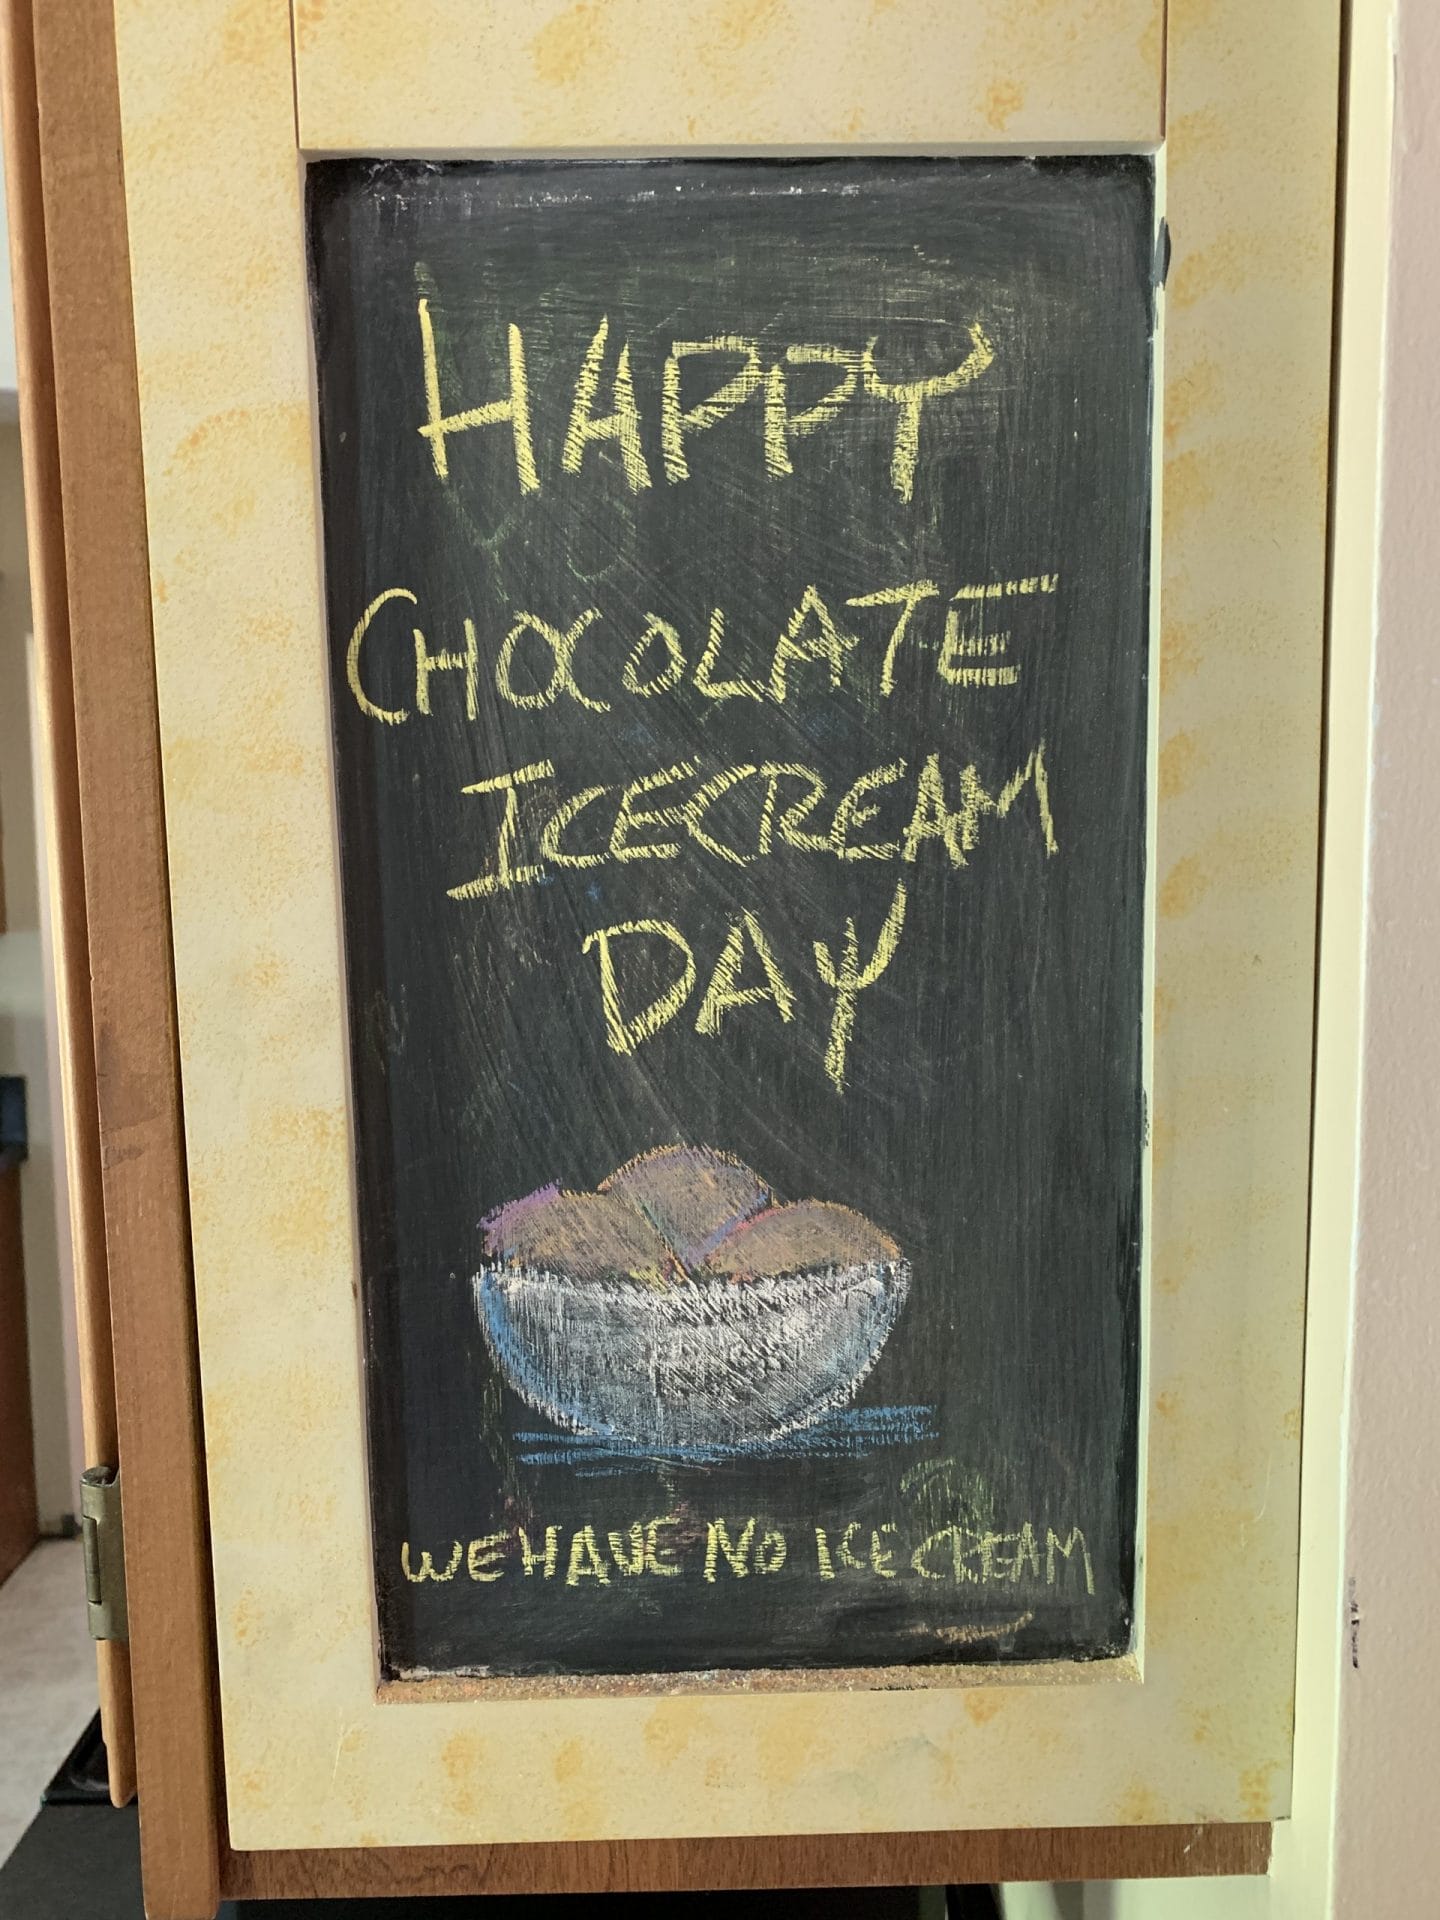 HAPPY
CHOCOLATE
ICECREAM
DAY
WE HAVE NO ICE CREAM